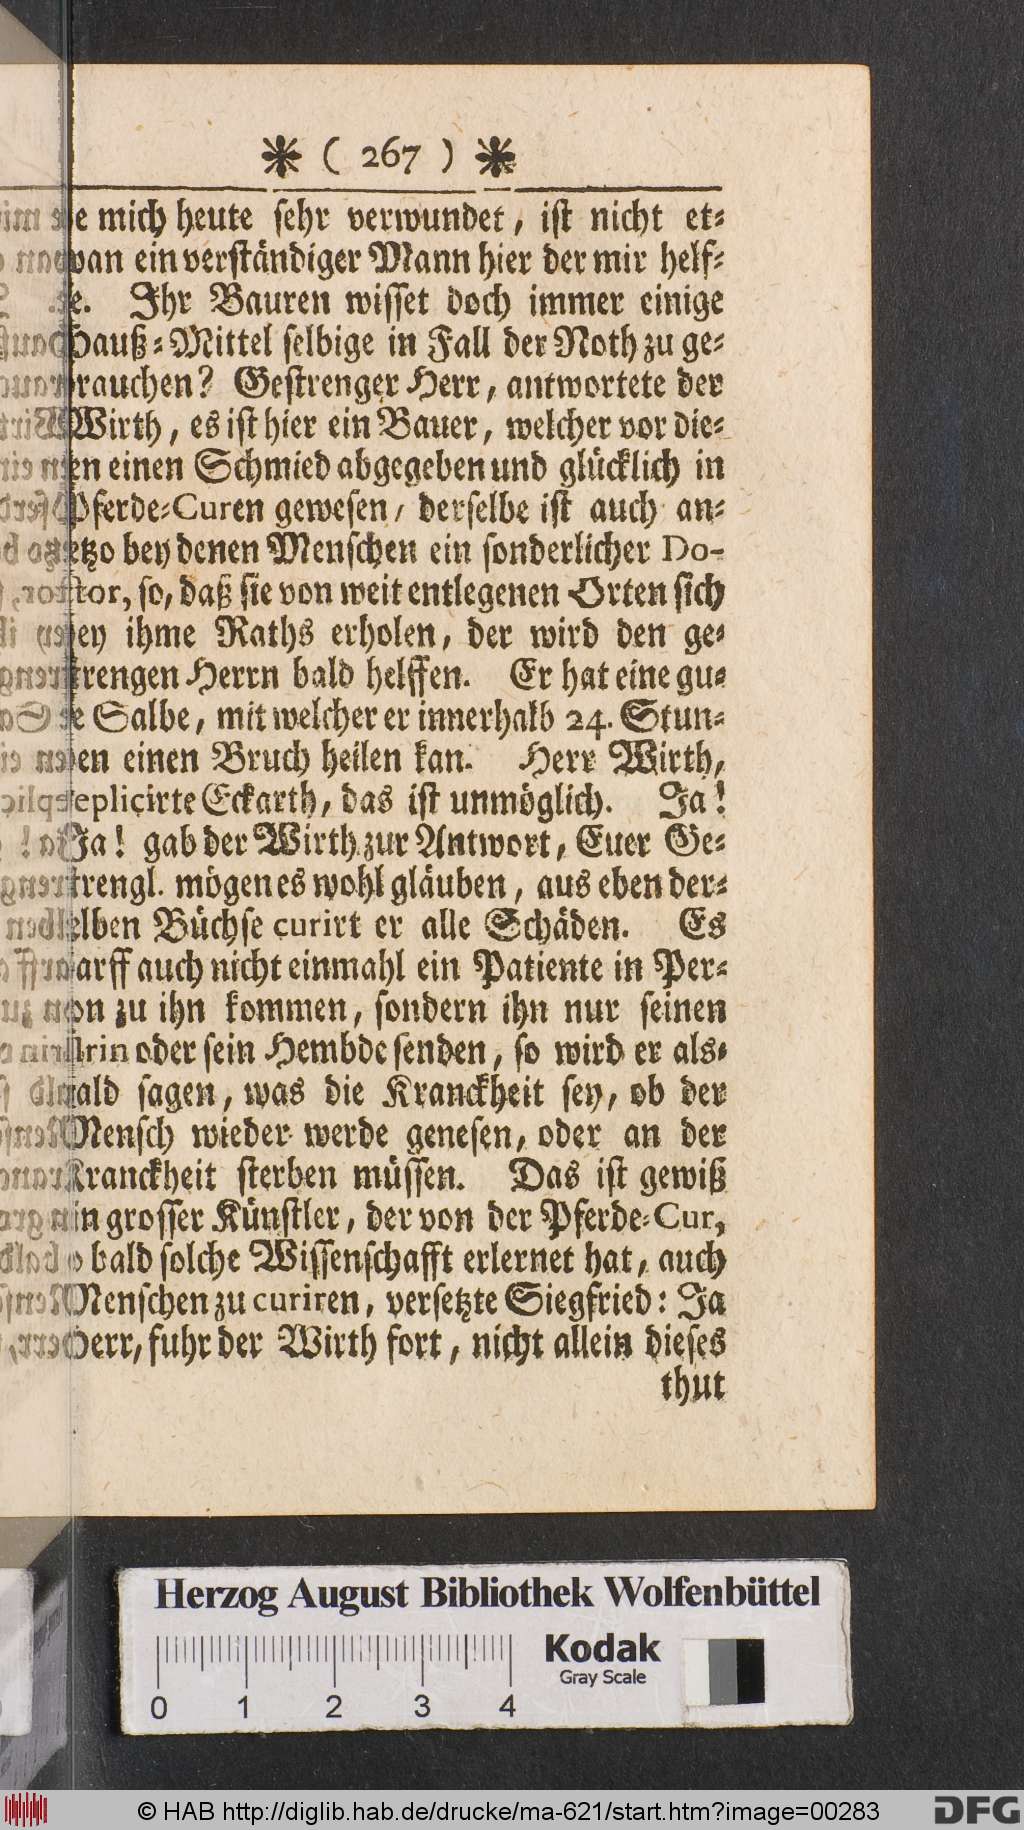 * ( 267 ) *
mich heute sehr verwundet, ist nicht et-
wan ein verständiger Mann hier der mir helf-
fe. Ihr Bauren wisset doch immer einige
Hauß-Mittel selbige in Fall der Noth zu ge-
brauchen? Gestrenger Herr, antwortete der
Wirth, es ist hier ein Bauer, welcher vor die-
sen einen Schmied abgegeben und glücklich in
Pferde-Curen gewesen, derselbe ist auch an-
jetzo bey denen Menschen ein sonderlicher Do-
ctor, so, daß sie von weit entlegenen Orten sich
bey ihme Raths erholen, der wird den ge-
strengen Herrn bald helffen. Er hat eine gu-
te Salbe, mit welcher er innerhalb 24. Stun-
den einen Bruch heilen kan. Herr Wirth,
replicirte Eckarth, das ist unmöglich. Ja!
Ja! gab der Wirth zur Antwort, Euer Ge-
strengl. mögen es wohl gläuben, aus eben der-
selben Büchse curirt er alle Schäden. Es
darff auch nicht einmahl ein Patiente in Per-
son zu ihn kommen, sondern ihn nur seinen
Urin oder sein Hembde senden, so wird er als-
bald sagen, was die Kranckheit sey, ob der
Mensch wieder werde genesen, oder an der
Kranckheit sterben müssen. Das ist gewiß
ein grosser Künstler, der von der Pferde-Cur,
so bald solche Wissenschafft erlernet hat, auch
Menschen zu curiren, versetzte Siegfried: Ja
Herr, fuhr der Wirth fort, nicht allein dieses
thut
Herzog August Bibliothek Wolfenbüttel
Kodak
Gray Scale
0 1 2 3 4
© HAB http://diglib.hab.de/drucke/ma-621/start.htm?image=00283
DFG